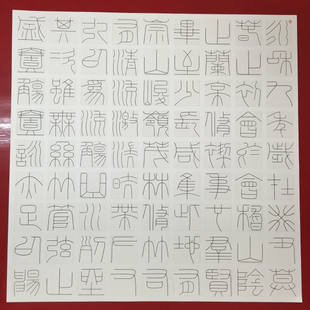 永和九年歲在癸丑暮
春之初會于會稽山陰
之蘭亭脩禊事也羣賢
畢至少長咸集此地有
崇山峻嶺茂林脩竹又
有清流激湍映帶左右
引以為流觴曲水列坐
其次雖無絲竹管弦之
盛壹觴壹詠亦足以暢